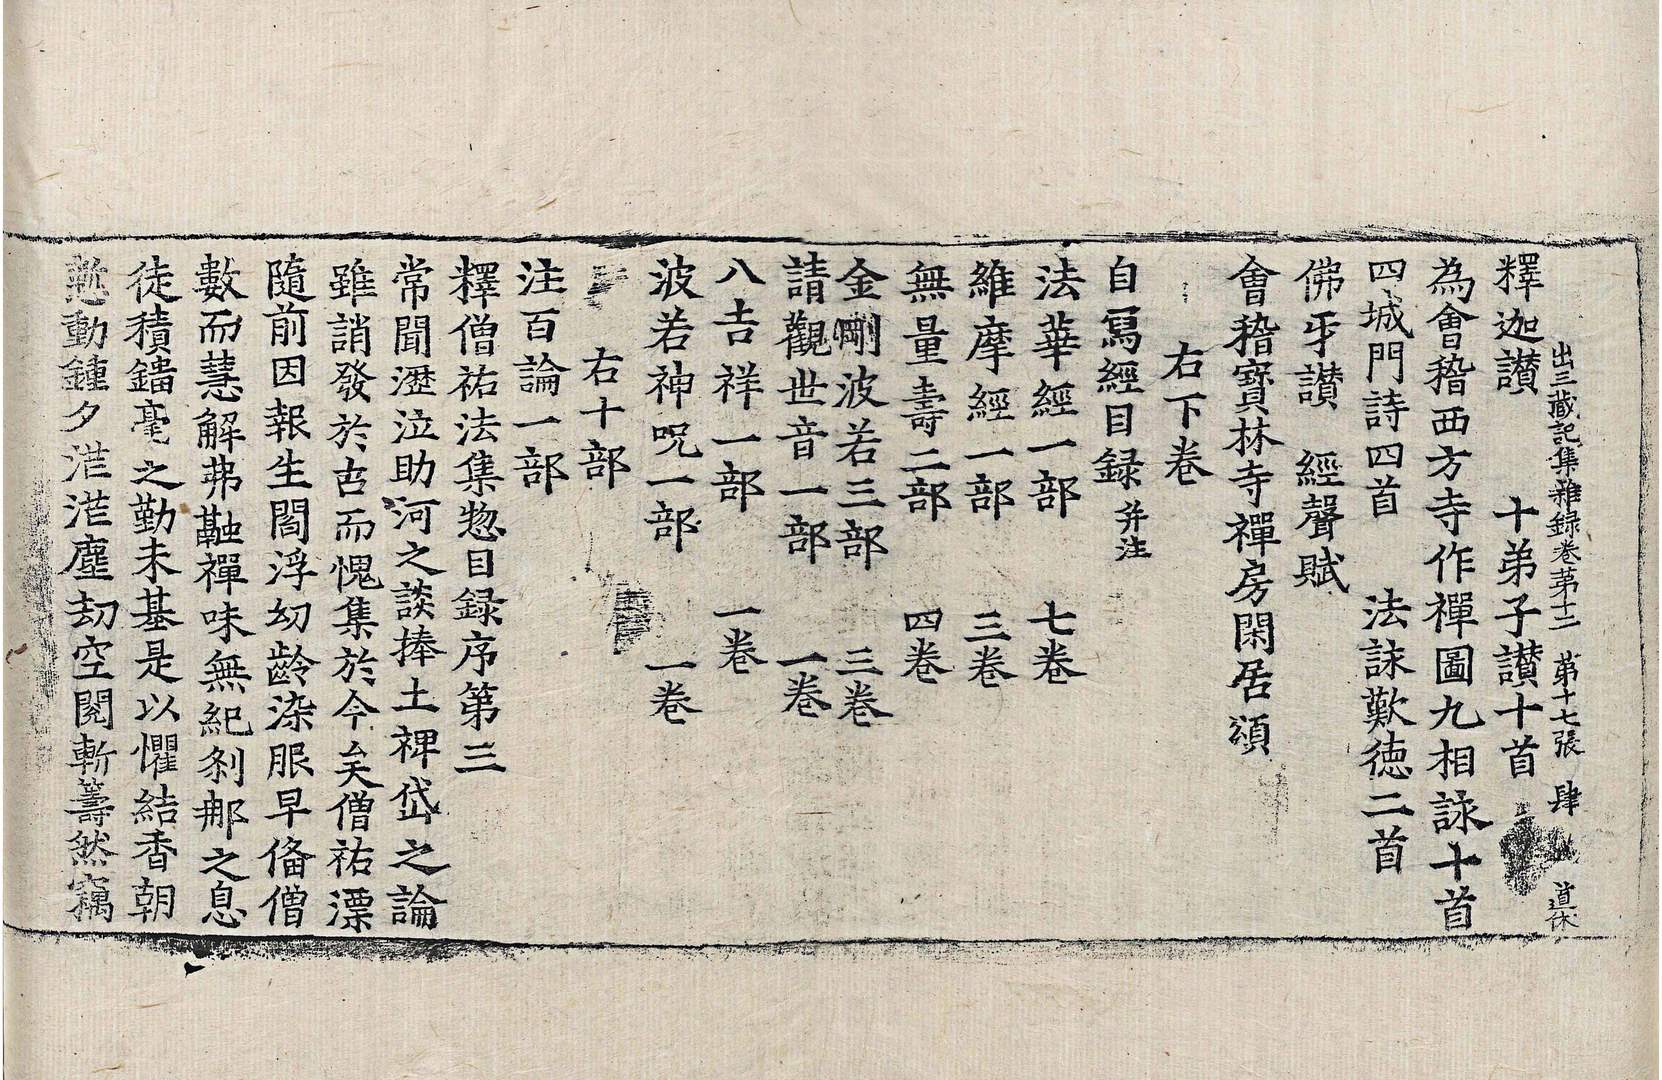 出三藏記集雜録卷第十二　第十七張　肆　道休
釋迦讃　十弟子讃十首
為會稽西方寺作禪圖九相詠十首
四城門詩四首　法詠歎徳二首
佛牙讃　經聲賦
會稽寶林寺禪房閑居頌
右下卷
自寫經目録并注
法華經一部　七卷
維摩經一部　三卷
無量壽二部　四卷
金剛波若三部　三卷
請觀世音一部　一卷
八吉祥一部　一卷
波若神呪一部　一卷
右十部
注百論一部
釋僧祐法集惣目録序第三
常聞瀝泣助河之談捧土裨岱之論
雖誚發於古而愧集於今矣僧祐漂
隨前因報生閻浮幼齡染服早俻僧
數而慧解弗融禪味無紀刹那之息
徒積錙毫之勤未基是以懼結香朝
慙動鍾夕茫茫塵劫空閱斬籌然竊